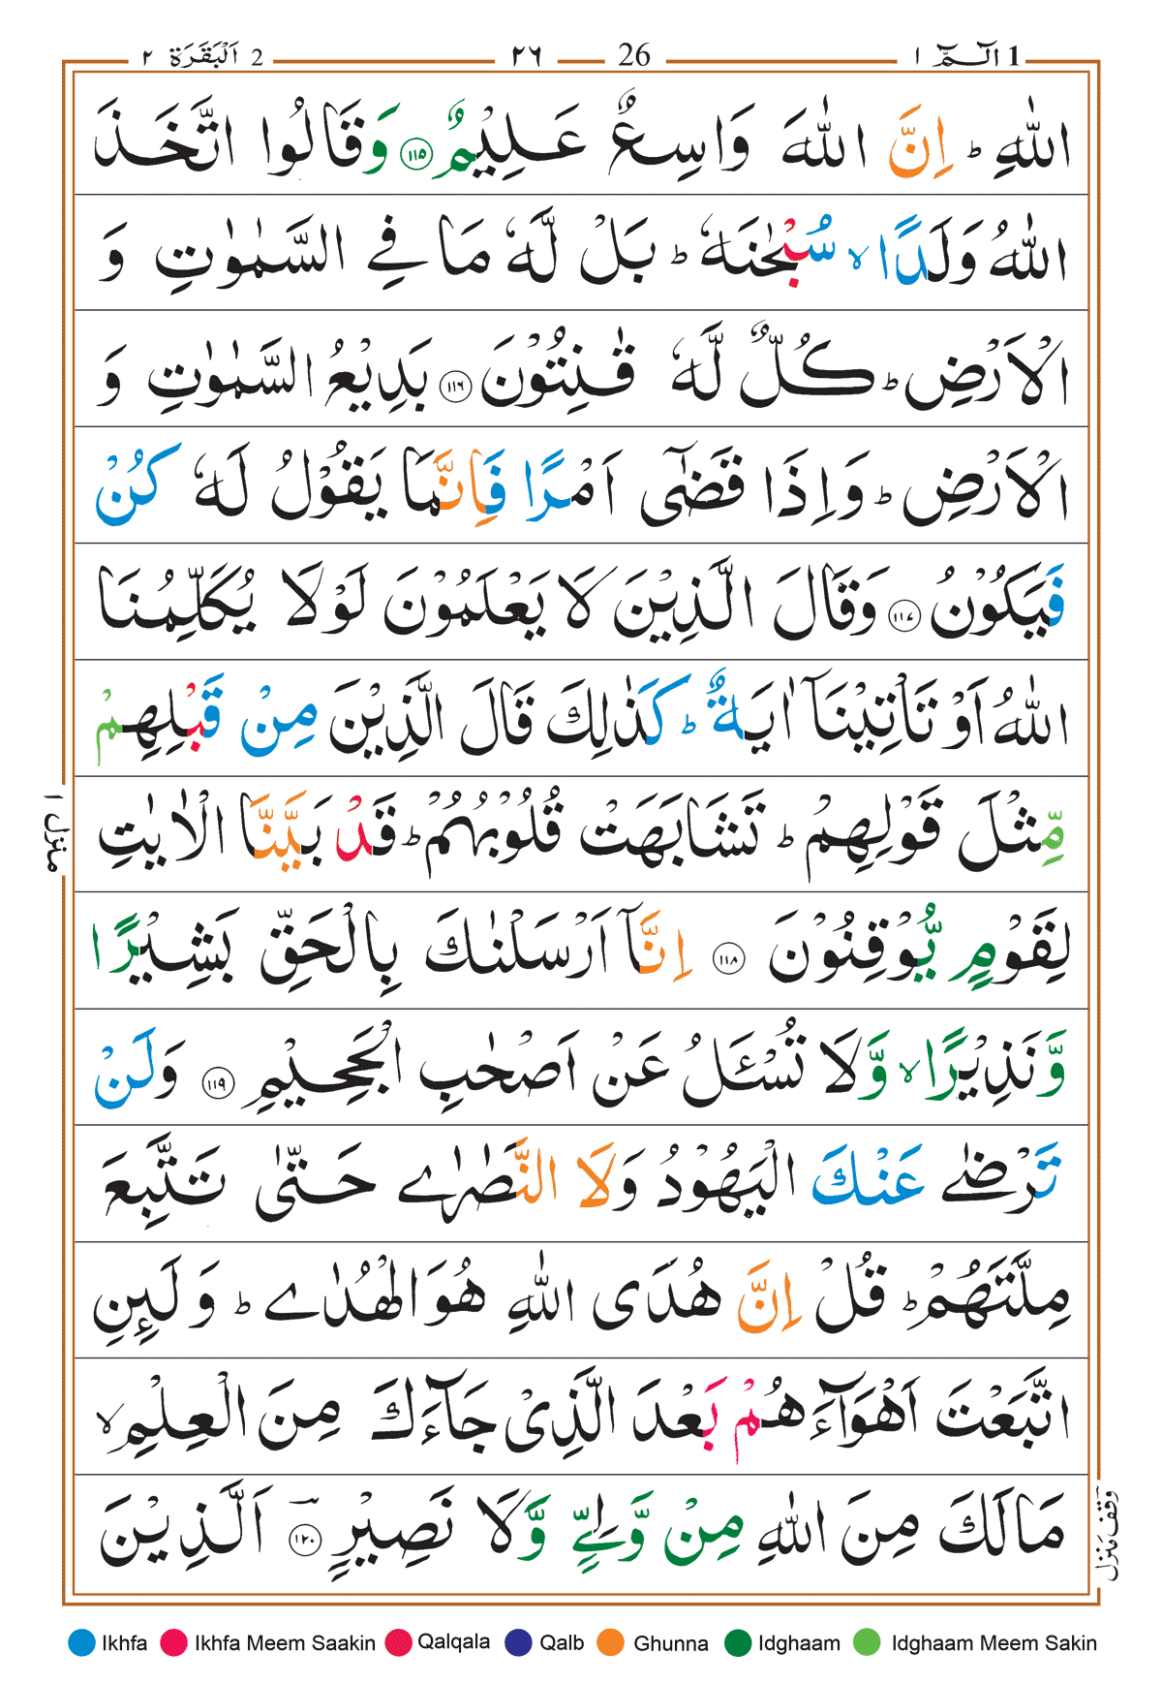 2 اَلْبَقَرَة ٢ ٢٦ 26 1 الٓـمّٓ ١
اللّٰهِ ؕ اِنَّ اللّٰهَ وَاسِعٌ عَلِيْمٌ ١١٥ وَقَالُوا اتَّخَذَ
اللّٰهُ وَلَدًا ۙ سُبْحٰنَهٗ ؕ بَلْ لَّهٗ مَا فِي السَّمٰوٰتِ وَ
الْاَرْضِ ؕ كُلٌّ لَّهٗ قٰنِتُوْنَ ١١٦ بَدِيْعُ السَّمٰوٰتِ وَ
الْاَرْضِ ؕ وَاِذَا قَضٰٓى اَمْرًا فَاِنَّمَا يَقُوْلُ لَهٗ كُنْ
فَيَكُوْنُ ١١٧ وَقَالَ الَّذِيْنَ لَا يَعْلَمُوْنَ لَوْلَا يُكَلِّمُنَا
اللّٰهُ اَوْ تَاْتِيْنَآ اٰيَةٌ ؕ كَذٰلِكَ قَالَ الَّذِيْنَ مِنْ قَبْلِهِمْ
مِّثْلَ قَوْلِهِمْ ؕ تَشَابَهَتْ قُلُوْبُهُمْ ؕ قَدْ بَيَّنَّا الْاٰيٰتِ
لِقَوْمٍ يُّوْقِنُوْنَ ١١٨ اِنَّآ اَرْسَلْنٰكَ بِالْحَقِّ بَشِيْرًا
وَّنَذِيْرًا ۙ وَّلَا تُسْـَٔلُ عَنْ اَصْحٰبِ الْجَحِيْمِ ١١٩ وَلَنْ
تَرْضٰى عَنْكَ الْيَهُوْدُ وَلَا النَّصٰرٰى حَتّٰى تَتَّبِعَ
مِلَّتَهُمْ ؕ قُلْ اِنَّ هُدَى اللّٰهِ هُوَ الْهُدٰى ؕ وَلَىِٕنِ
اتَّبَعْتَ اَهْوَآءَهُمْ بَعْدَ الَّذِيْ جَآءَكَ مِنَ الْعِلْمِ ۙ
مَا لَكَ مِنَ اللّٰهِ مِنْ وَّلِيٍّ وَّلَا نَصِيْرٍ ١٢٠ اَلَّذِيْنَ
منزل ١
وقف منزل
Ikhfa Ikhfa Meem Saakin Qalqala Qalb Ghunna Idghaam Idghaam Meem Sakin